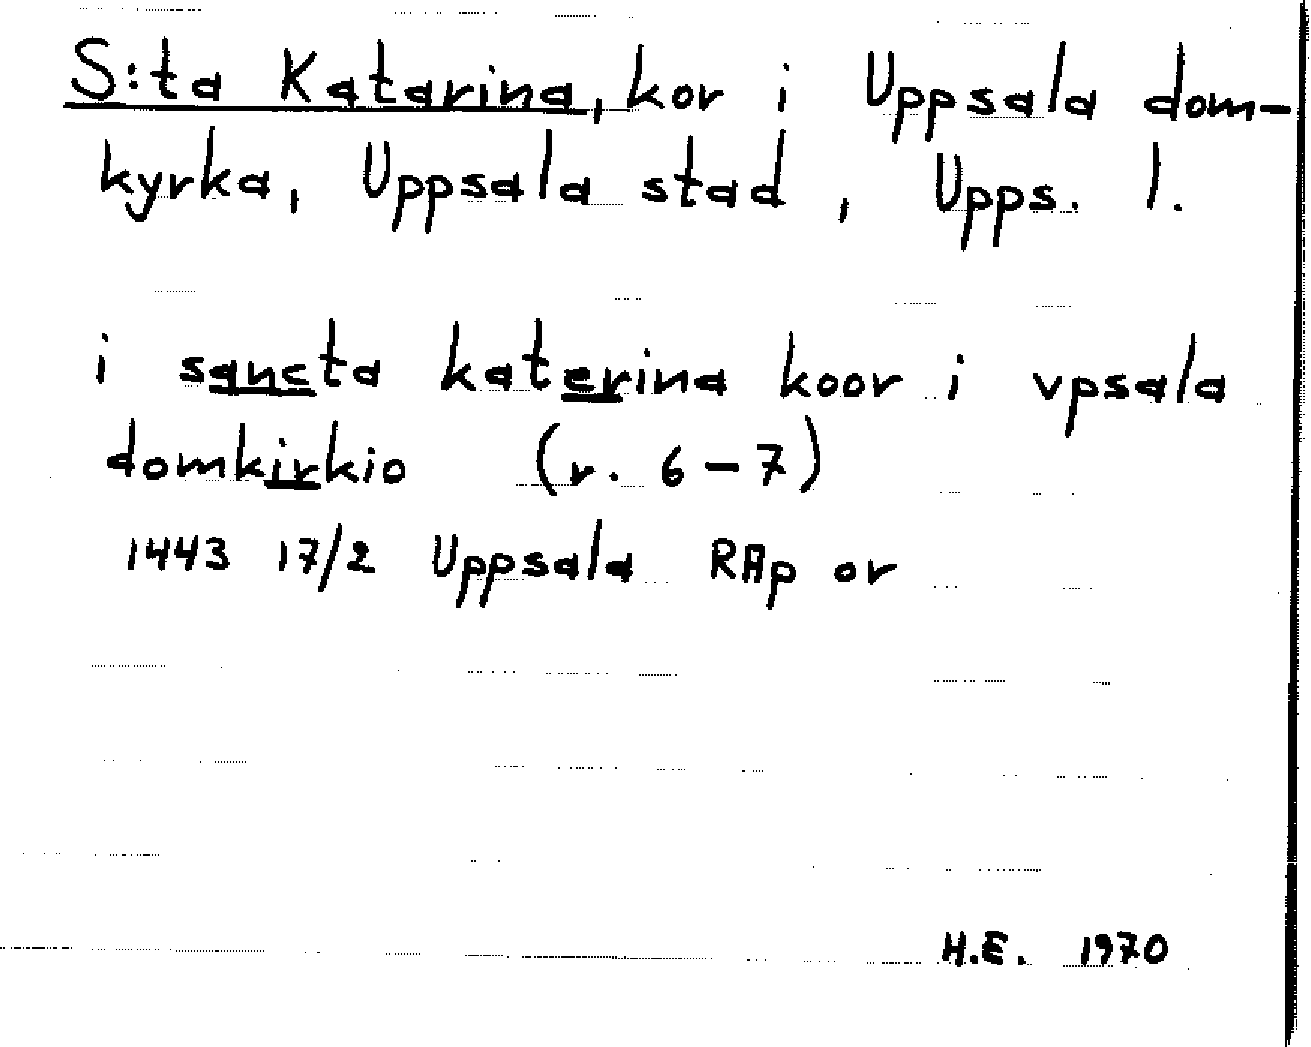 S:ta Katarina, kor i Uppsala dom-
kyrka, Uppsala stad, Upps. l.
i sancta katerina koor i vpsala
domkirkio (r. 6-7)
1443 17/2 Uppsala RAp or
H.E. 1970